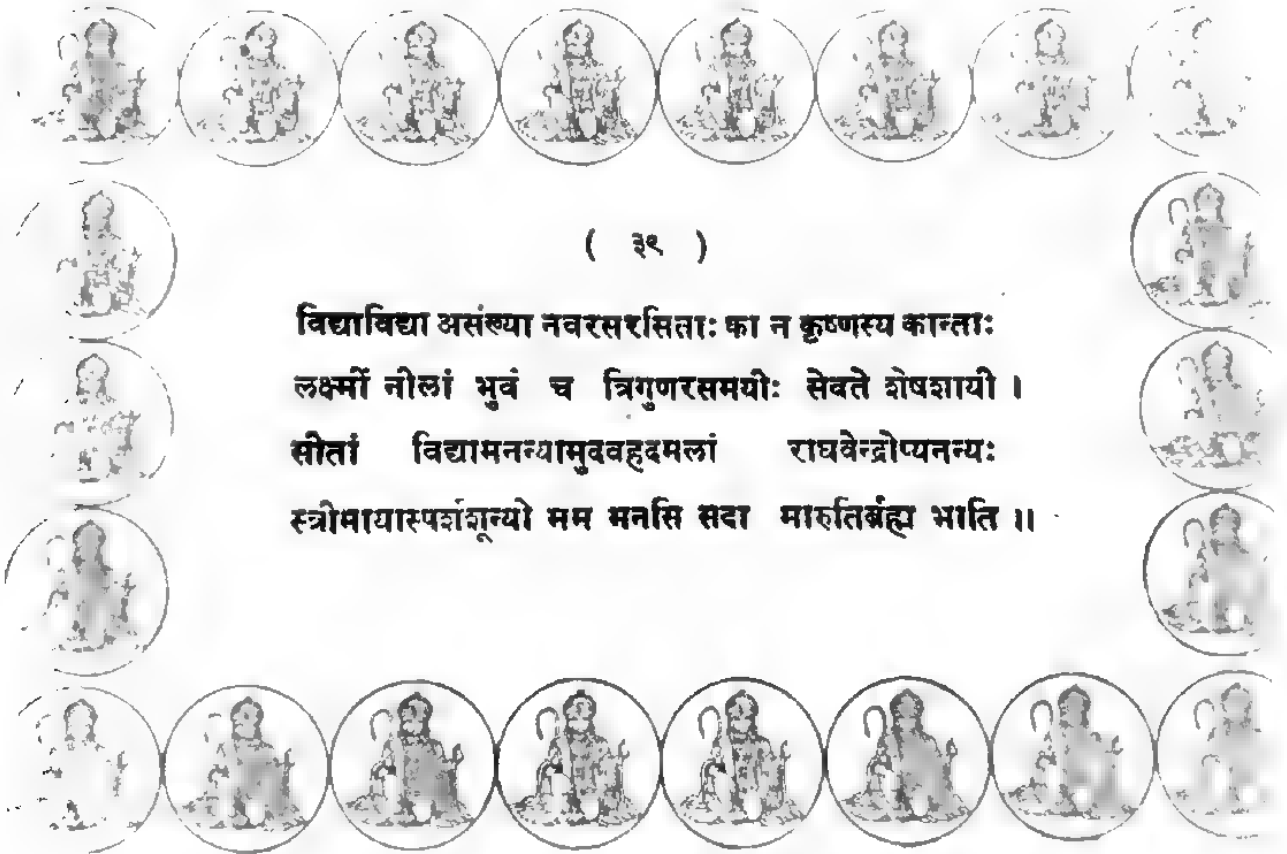 ( ३९ )
विद्याविद्या असंख्या नवरसरसिताः का न कृष्णस्य कान्ताः
लक्ष्मीं नीलां भुवं च त्रिगुणरसमयीः सेवते शेषशायी ।
सीतां विद्यामनन्यामुदवहदमलां राघवेन्द्रोप्यनन्यः
स्त्रीमायास्पर्शशून्यो मम मनसि सदा मारुतिर्ब्रह्म भाति ॥